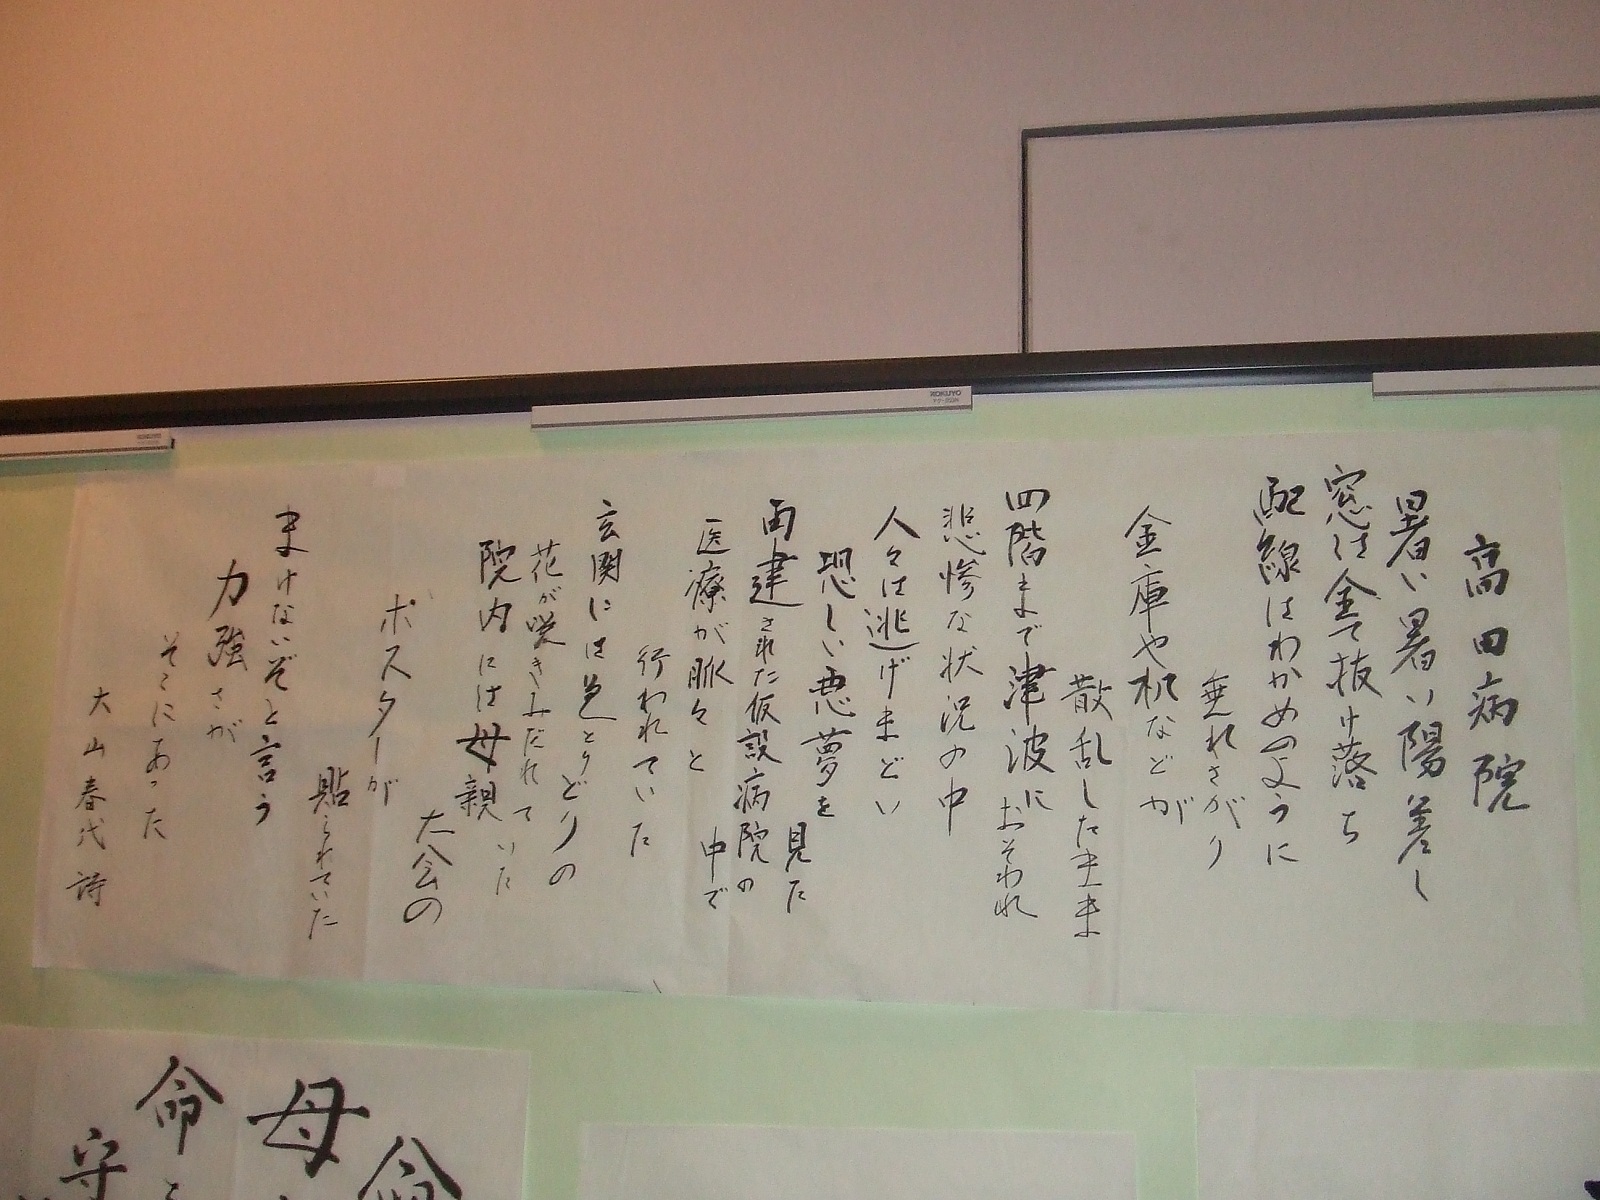 高田病院
暑い暑い陽差し
窓は全て抜け落ち
配線はわかめのように
垂れさがり
金庫や机などが
散乱したまま
四階まで津波におそわれ
悲惨な状況の中
人々は逃げまどい
恐しい悪夢を
見た
再建された仮設病院の
中で
医療が脈々と
行われていた
玄関には色とりどりの
花が咲きみだれて
いた
院内には母親
大会の
ポスターが
貼られていた
まけないぞと言う
力強さが
そこにあった
大山春代詩
KOKUYO
KOKUYO
命
母
命
守